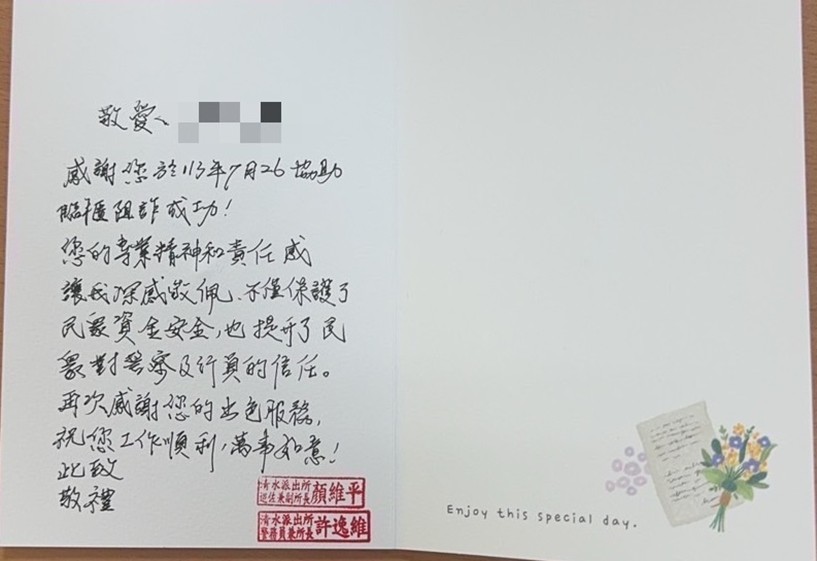 敬愛、
感謝您於113年7月26協助
臨櫃阻詐成功！
您的專業精神和責任感
讓我深感敬佩、不僅保護了
民眾資金安全，也提升了民
眾對警察及行員的信任。
再次感謝您的出色服務，
祝您工作順利，萬事如意！
此致
敬禮
清水派出所
巡佐兼副所長 顏維平
清水派出所
警務員兼所長 許逸維
Enjoy this special day.